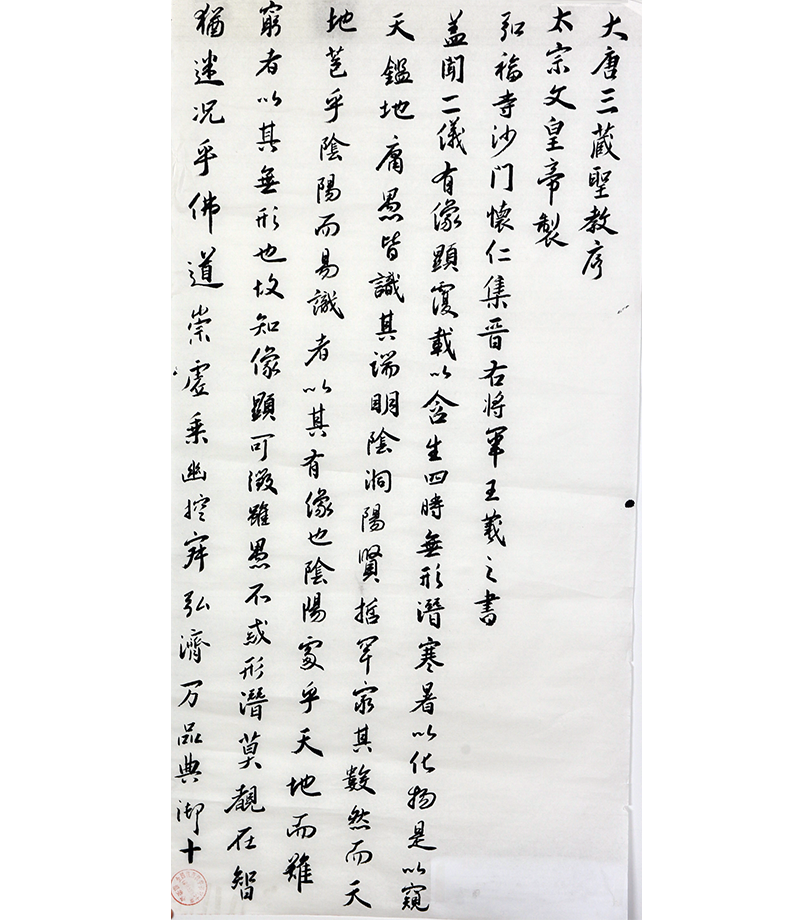 大唐三藏聖教序
太宗文皇帝製
弘福寺沙门懷仁集晋右将軍王羲之書
盖聞二儀有像顯覆載以含生四時無形潛寒暑以化物是以窺
天鑑地庸愚皆識其端明陰洞陽賢哲罕窮其數然而天
地苞乎陰陽而易識者以其有像也陰陽處乎天地而難
窮者以其無形也故知像顯可徵雖愚不惑形潛莫覩在智
猶迷况乎佛道崇虛乘幽控寂弘濟万品典御十